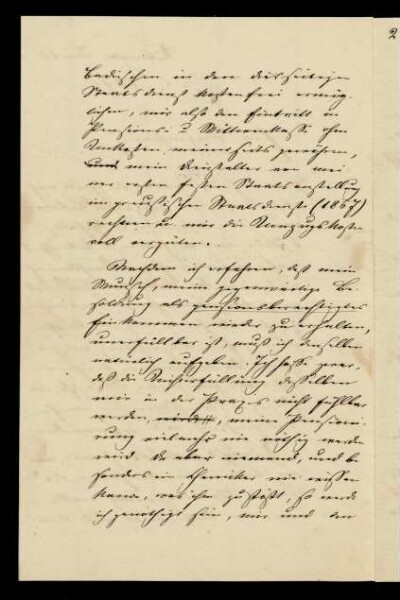 Badischen in den diesseitigen
Staatsdienst kostenfrei ermög-
lichen, mir also den Eintritt in
Pensions- u Wittwenkasse ohne
Unkosten meinerseits gewähren,
und mein Dienstalter von mei
ner ersten festen Staatsanstellung
im preußischen Staatsdienste (1867)
rechnen u. mir die Umzugskosten
voll vergüten.
Nachdem ich erfahren, daß mein
Wunsch, meine gegenwärtige Be-
soldung als pensionsberechtigtes
Einkommen wieder zu erhalten,
unerfüllbar ist, muß ich denselben
natürlich aufgeben. Ich hoffe zwar,
daß die Nichterfüllung desselben
mir in der Praxis nicht fühlbar
werden, meine Pensioni-
rung vielmehr nie nöthig werden
wird. Da aber niemand, und be
sonders ein Chemiker nie wissen
kann, was ihm zustößt, so werde
ich genöthigt sein, mir und den
2